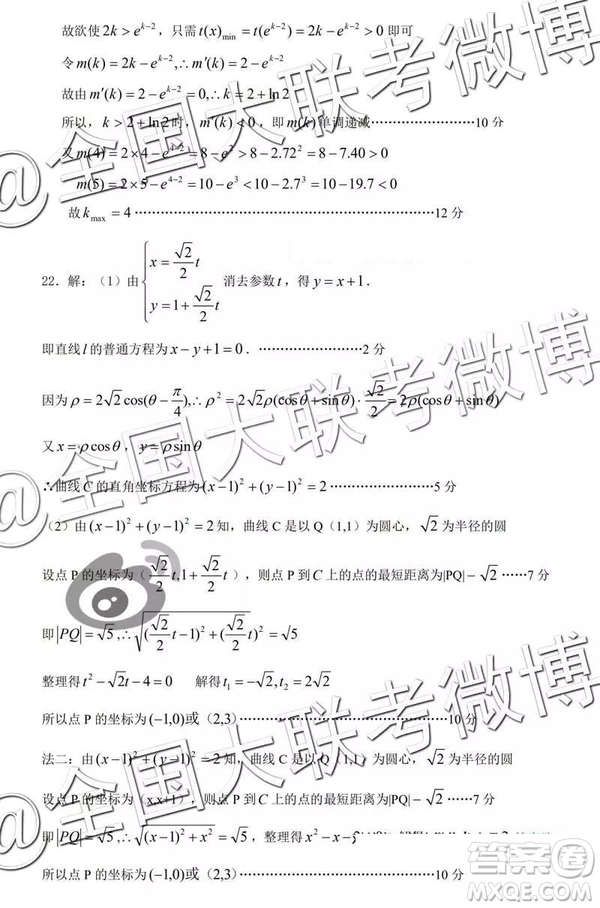 故欲使 2k > e^{k-2}，只需 t(x)_{min} = t(e^{k-2}) = 2k - e^{k-2} > 0 即可
令 m(k) = 2k - e^{k-2}, ∴ m′(k) = 2 - e^{k-2}
故由 m′(k) = 2 - e^{k-2} = 0, ∴ k = 2 + ln 2
所以，k > 2 + ln 2 时，m′(k) < 0，即 m(k) 单调递减………………10 分
又 m(4) = 2×4 - e^{4-2} = 8 - e^2 > 8 - 2.72^2 = 8 - 7.40 > 0
m(5) = 2×5 - e^{4-2} = 10 - e^3 < 10 - 2.7^3 = 10 - 19.7 < 0
故 k_{max} = 4 ………………………………………12 分
22．解：（1）由 { x = √2/2 t, y = 1 + √2/2 t 消去参数 t，得 y = x + 1．
即直线 l 的普通方程为 x - y + 1 = 0．………………2 分
因为 ρ = 2√2 cos(θ - π/4), ∴ ρ^2 = 2√2 ρ(cosθ + sinθ)·√2/2 = 2ρ(cosθ + sinθ)
又 x = ρcosθ，y = ρsinθ
∴曲线 C 的直角坐标方程为 (x-1)^2 + (y-1)^2 = 2 ………………5 分
（2）由 (x-1)^2 + (y-1)^2 = 2 知，曲线 C 是以 Q（1,1）为圆心，√2 为半径的圆
设点 P 的坐标为（√2/2 t, 1 + √2/2 t），则点 P 到 C 上的点的最短距离为|PQ| - √2 ……7 分
即 |PQ| = √5, ∴ √((√2/2 t - 1)^2 + (√2/2 t)^2) = √5
整理得 t^2 - √2t - 4 = 0 解得 t_1 = -√2, t_2 = 2√2
所以点 P 的坐标为 (-1,0) 或（2,3）………………………………10 分
法二：由 (x-1)^2 + (y-1)^2 = 2 知，曲线 C 是以 Q（1,1）为圆心，√2 为半径的圆
设点 P 的坐标为（x,x+1），则点 P 到 C 上的点的最短距离为|PQ| - √2 ……7 分
即 |PQ| = √5, ∴ √((x-1)^2 + x^2) = √5，整理得 x^2 - x -
所以点 P 的坐标为 (-1,0) 或（2,3）………………………………10 分
@全国大联考微博
@全国大联考微博
@全国大联考微博
答案圈
MXQE.COM